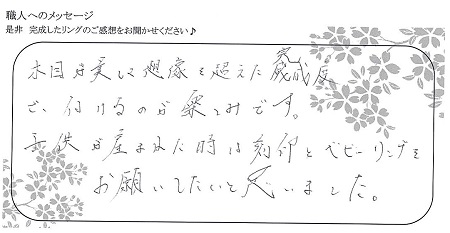 職人へのメッセージ
是非 完成したリングのご感想をお聞かせください♪
木目が美しく想像を超えた完成度
で、付けるのが楽しみです。
子供が産まれた時は刻印とベビーリングを
お願いしたいと思いました。